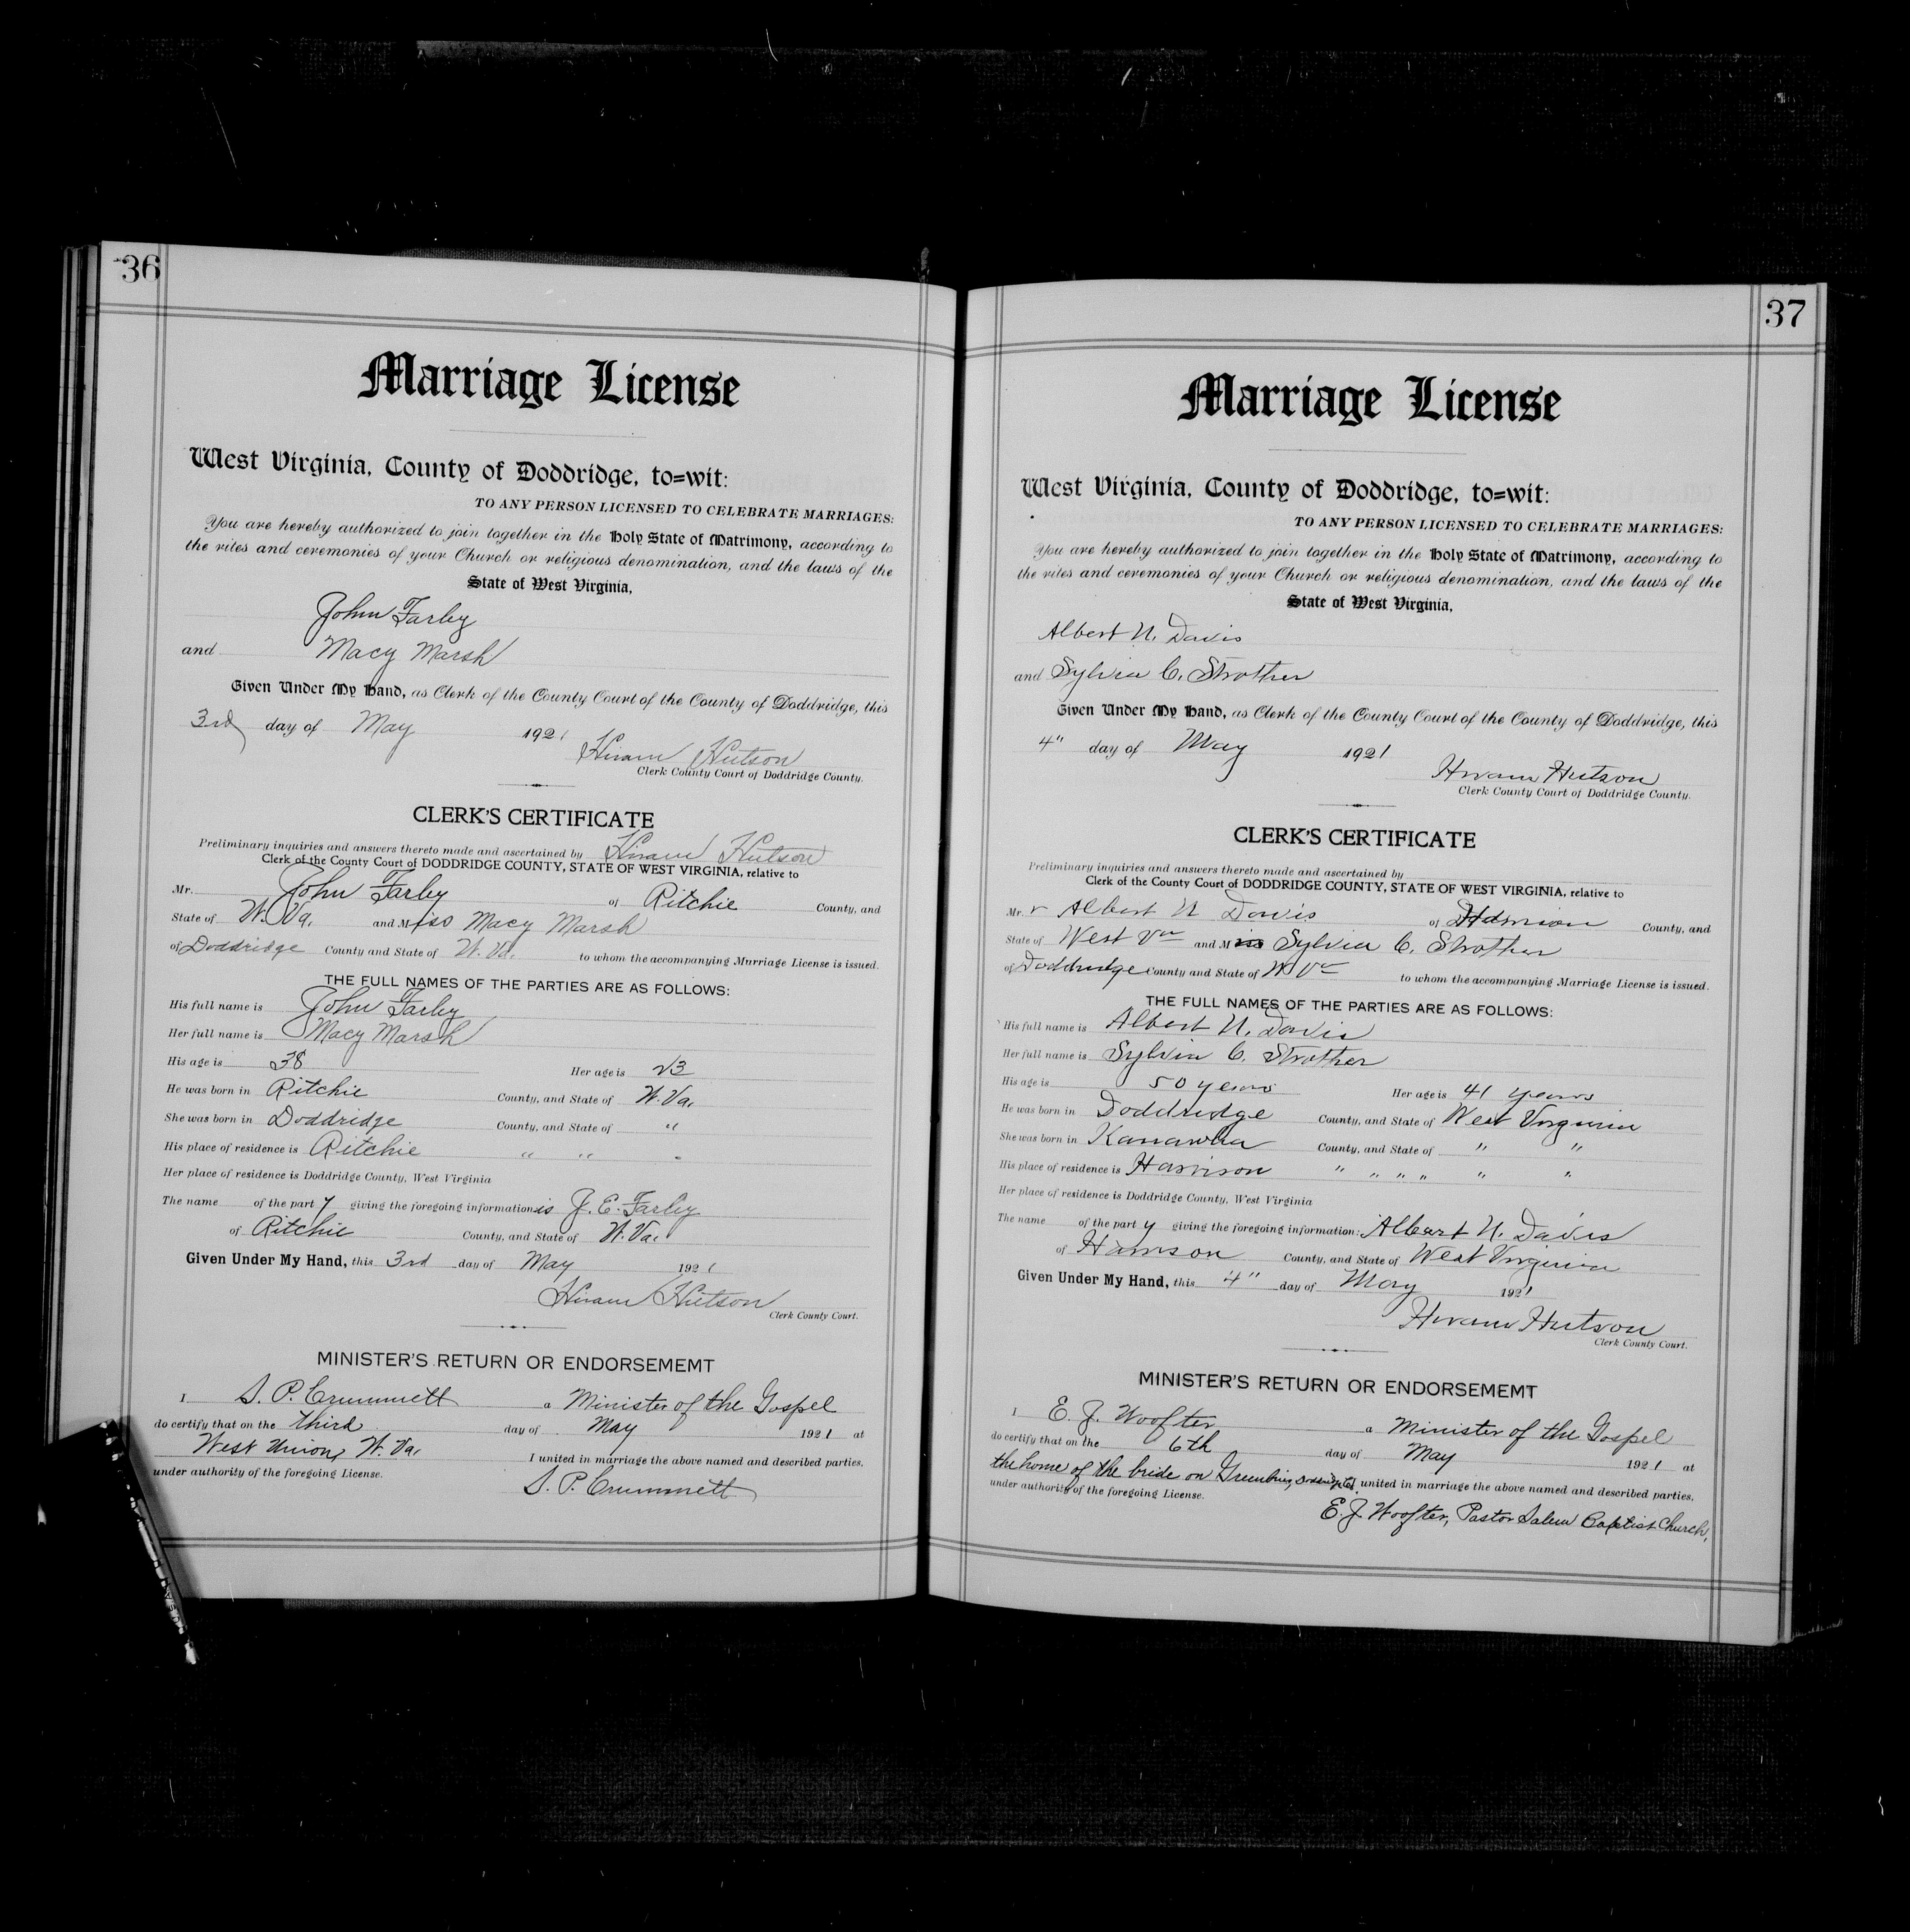 36
Marriage License
West Virginia, County of Doddridge, to=wit:
TO ANY PERSON LICENSED TO CELEBRATE MARRIAGES:
You are hereby authorized to join together in the Holy State of Matrimony, according to
the rites and ceremonies of your Church or religious denomination, and the laws of the
State of West Virginia,
John Farley
and Macy Marsh
Given Under My Hand, as Clerk of the County Court of the County of Doddridge, this
3rd day of May 1921
Hiram Hutson
Clerk County Court of Doddridge County.
CLERK'S CERTIFICATE
Preliminary inquiries and answers thereto made and ascertained by Hiram Hutson
Clerk of the County Court of DODDRIDGE COUNTY, STATE OF WEST VIRGINIA, relative to
Mr. John Farley of Ritchie County, and
State of W. Va. and Miss Macy Marsh
of Doddridge County and State of W. Va. to whom the accompanying Marriage License is issued.
THE FULL NAMES OF THE PARTIES ARE AS FOLLOWS:
His full name is John Farley
Her full name is Macy Marsh
His age is 38 Her age is 23
He was born in Ritchie County, and State of W. Va.
She was born in Doddridge County, and State of "
His place of residence is Ritchie " " "
Her place of residence is Doddridge County, West Virginia
The name of the part y giving the foregoing information is J. E. Farley
of Ritchie County, and State of W. Va.
Given Under My Hand, this 3rd day of May 1921
Hiram Hutson
Clerk County Court.
MINISTER'S RETURN OR ENDORSEMEMT
I S. P. Crummett a Minister of the Gospel
do certify that on the third day of May 1921 at
West Union, W. Va. I united in marriage the above named and described parties.
under authority of the foregoing License.
S. P. Crummett
37
Marriage License
West Virginia, County of Doddridge, to=wit:
TO ANY PERSON LICENSED TO CELEBRATE MARRIAGES:
You are hereby authorized to join together in the Holy State of Matrimony, according to
the rites and ceremonies of your Church or religious denomination, and the laws of the
State of West Virginia,
Albert N. Davis
and Sylvia C. Strother
Given Under My Hand, as Clerk of the County Court of the County of Doddridge, this
4" day of May 1921
Hiram Hutson
Clerk County Court of Doddridge County.
CLERK'S CERTIFICATE
Preliminary inquiries and answers thereto made and ascertained by
Clerk of the County Court of DODDRIDGE COUNTY, STATE OF WEST VIRGINIA, relative to
Mr. Albert N Davis of Harrison County, and
State of West Va and M Sylvia C. Strother
of Doddridge County and State of W Va to whom the accompanying Marriage License is issued.
THE FULL NAMES OF THE PARTIES ARE AS FOLLOWS:
His full name is Albert N. Davis
Her full name is Sylvia C. Strother
His age is 50 years Her age is 41 years
He was born in Doddridge County, and State of West Virginia
She was born in Kanawha County, and State of " "
His place of residence is Harrison " " " " " "
Her place of residence is Doddridge County, West Virginia
The name of the part y giving the foregoing information: Albert N. Davis
of Harrison County, and State of West Virginia
Given Under My Hand, this 4" day of May 1921
Hiram Hutson
Clerk County Court.
MINISTER'S RETURN OR ENDORSEMEMT
I E. J. Woofter a Minister of the Gospel
do certify that on the 6th day of May 1921 at
the home of the bride on Greenbrier, united in marriage the above named and described parties,
under authority of the foregoing License.
E. J. Woofter, Pastor Salem Baptist Church,